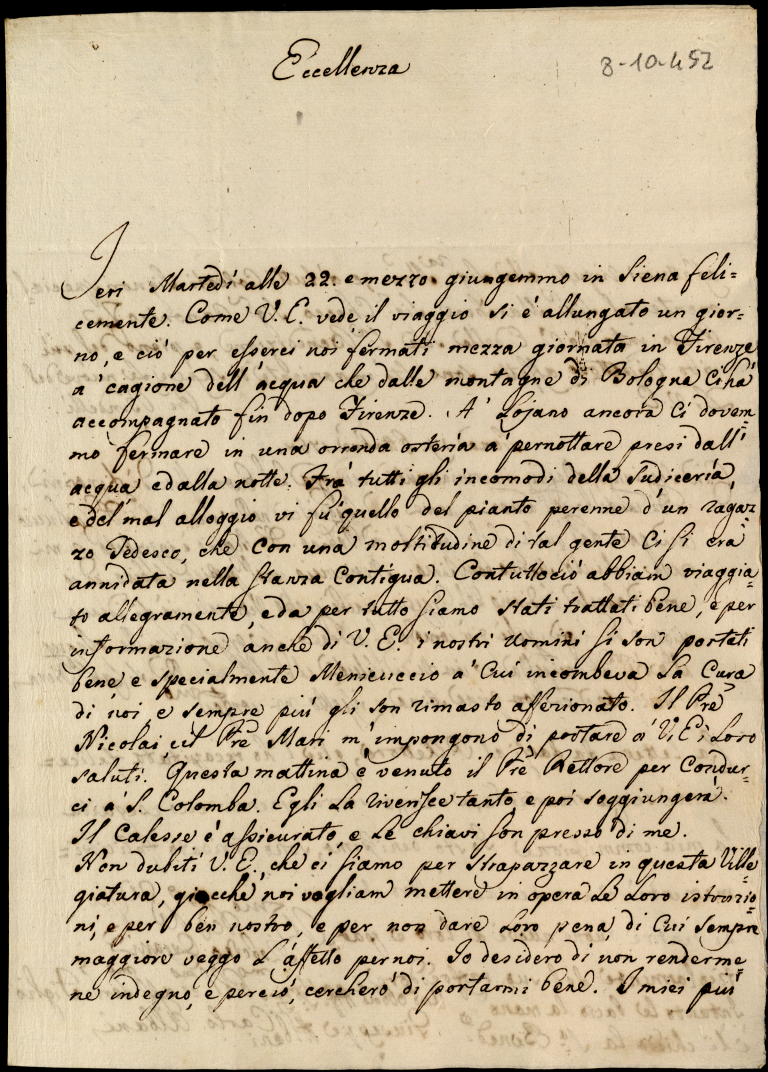 Eccellenza
8-10-452
Ieri Martedì alle 22. e mezzo giungemmo in Siena feli=
cemente. Come V. E. vede il viaggio si è allungato un gior=
no, e ciò per esserci noi fermati mezza giornata in Firenze
a' cagione dell' acqua che dalle montagne di Bologna ci ha
accompagnato fin dopo Firenze. A' Lojano ancora ci dovem=
mo fermare in una orrenda osteria a' pernottare presi dall'
acqua e dalla notte. Frà tutti gli incomodi della sudiceria,
e del mal alloggio vi fù quello del pianto perenne d'un ragaz=
zo Tedesco, che con una moltitudine di tal gente ci si era
annidata nella stanza contigua. Contuttociò abbiam viaggia=
to allegramente, e da per tutto siamo stati trattati bene, e per
informazione anche di V. E. i nostri uomini si son portati
bene e specialmente Menicuccio a' cui incombeva la cura
di noi, e sempre più gli son rimasto affezionato. Il Pre
Nicolai, ed il Pre Mari m' impongono di portare a' V. E. i loro
saluti. Questa mattina è venuto il Pre Rettore per condur=
ci a' S. Colomba. Egli la riverisce tanto, e poi soggiungerà.
Il Calesse è assicurato, e le chiavi son presso di me.
Non dubiti V. E., che ci siamo per strapazzare in questa Ville=
giatura, giacchè noi vogliam mettere in opera le loro istruzio=
ni, e per ben nostro, e per non dare loro pena, di cui sempre
maggiore veggo l'affetto per noi. Io desidero di non renderme=
ne indegno, e perciò, cercherò di portarmi bene. I miei più